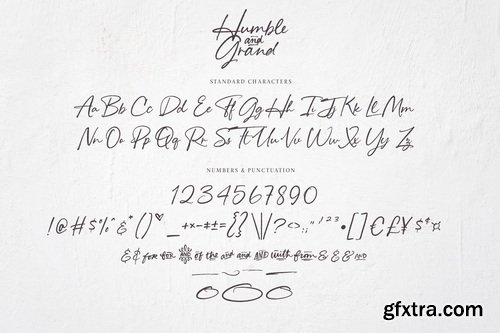 Humble
and
Grand
STANDARD CHARACTERS
Aa Bb Cc Dd Ee Ff Gg Hh Ii Jj Kk Ll Mm
Nn Oo Pp Qq Rr Ss Tt Uu Vv Ww Xx Yy Zz
NUMBERS & PUNCTUATION
1234567890
!@#$%^&*()♡_+×-±±={}\|/?<>:;"123•[]€£¥$¢¤
for for and of the art and AND with from & & & AND
gfxtra.com